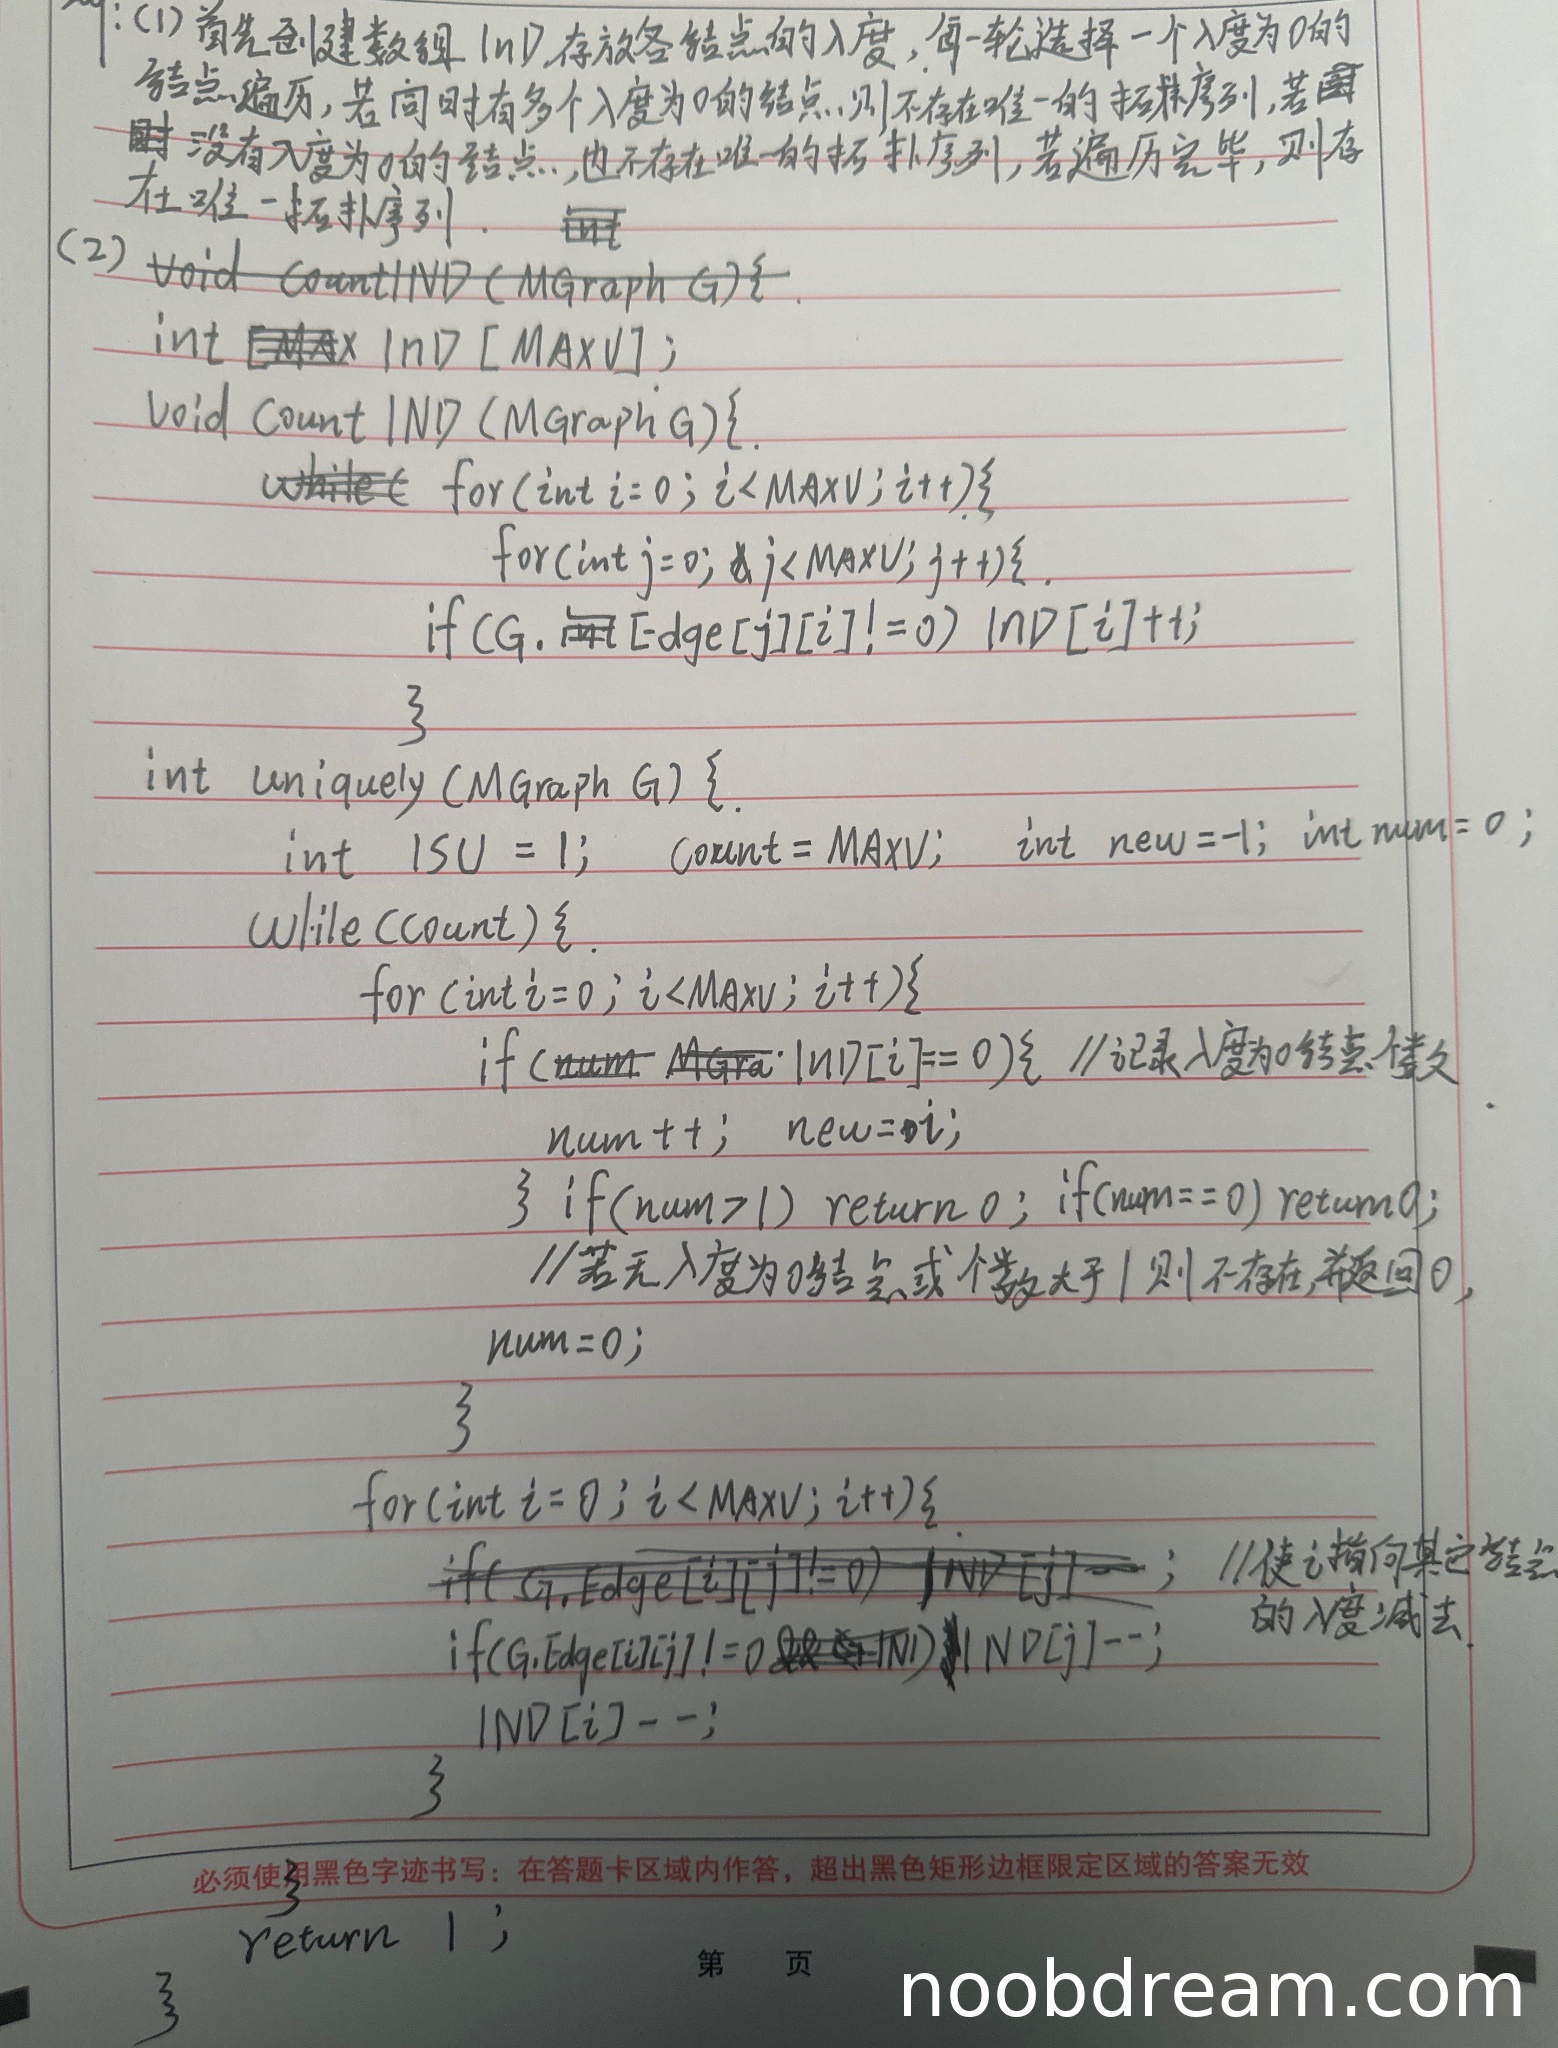 :(1)首先创建数组 InD,存放各结点的入度,每一轮选择一个入度为0的
结点遍历,若同时有多个入度为0的结点,则不存在唯一的拓扑序列,若
没有入度为0的结点,也不存在唯一的拓扑序列,若遍历完毕,则存
在唯一拓扑序列.
(2) void CountIND(MGraph G){
int InD[MAXV];
void Count IND(MGraph G){
while( for(int i=0; i<MAXV; i++){
for(int j=0; j<MAXV; j++){
if(G. int Edge[j][i]!=0) InD[i]++;
}
int uniquely(MGraph G){
int ISU = 1; count=MAXV; int new=-1; int num=0;
while(count){
for(int i=0; i<MAXV; i++){
if(num MGra InD[i]==0){ //记录入度为0结点个数
num++; new=i;
} if(num>1) return 0; if(num==0) return 0;
//若无入度为0结点或个数大于1则不存在,并返回0,
num=0;
}
for(int i=0; i<MAXV; i++){
if(G.Edge[i][j]!=0) IND[j]--; //使i指向其它结点
的入度减去
if(G.Edge[i][j]!=0) IND[j]--;
IND[i]--;
}
必须使用黑色字迹书写:在答题卡区域内作答,超出黑色矩形边框限定区域的答案无效
}
return 1;
第 页
}
noobdream.com